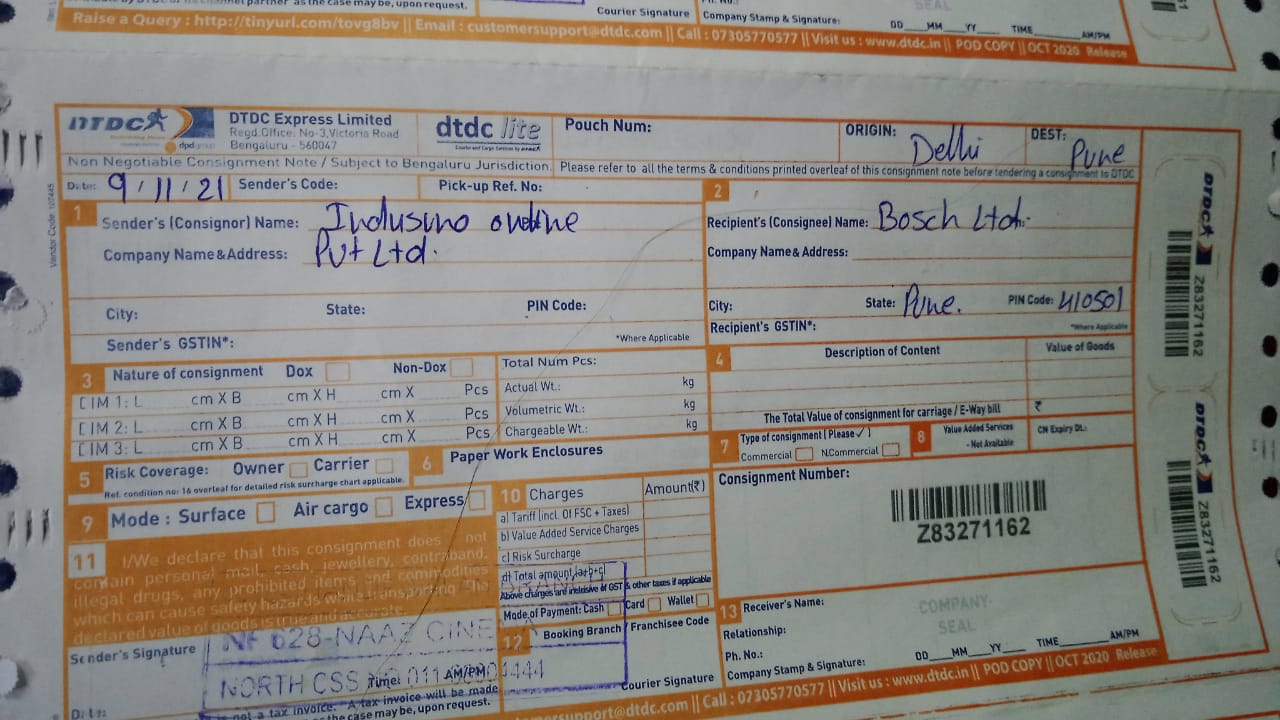 partner as the case may be, upon request.
Courier Signature
Company Stamp & Signature:
SEAL
DD___MM___YY___ TIME______AM/PM
Raise a Query : http://tinyurl.com/tovg8bv || Email : customersupport@dtdc.com || Call : 07305770577 || Visit us : www.dtdc.in || POD COPY || OCT 2020 Release
DTDC
DTDC Express Limited
Regd.Office: No-3,Victoria Road
Bengaluru - 560047
dtdc lite
Pouch Num:
ORIGIN: Delhi
DEST: Pune
Non Negotiable Consignment Note / Subject to Bengaluru Jurisdiction
Please refer to all the terms & conditions printed overleaf of this consignment note before tendering a consignment to DTDC
Date: 9/11/21
Sender's Code:
Pick-up Ref. No:
Vendor Code: 107445
1
Sender's (Consignor) Name: Indusino online
Company Name & Address: Pvt Ltd.
City:
State:
PIN Code:
Sender's GSTIN*:
*Where Applicable
2
Recipient's (Consignee) Name: Bosch Ltd.
Company Name & Address:
City:
State: Pune.
PIN Code: 410501
Recipient's GSTIN*:
*Where Applicable
3 Nature of consignment Dox Non-Dox
DIM 1: L cm X B cm X H cm X Pcs
DIM 2: L cm X B cm X H cm X Pcs
DIM 3: L cm X B cm X H cm X Pcs
Total Num Pcs:
Actual Wt.: kg
Volumetric Wt.: kg
Chargeable Wt.: kg
4
Description of Content
Value of Goods
The Total Value of consignment for carriage / E-Way bill ₹
5 Risk Coverage: Owner Carrier
Ref. condition no: 16 overleaf for detailed risk surcharge chart applicable.
6 Paper Work Enclosures
7 Type of consignment [Please ✓]
Commercial N.Commercial
8 Value Added Services
- Not Available
CN Expiry Dt.:
9 Mode : Surface Air cargo Express
10 Charges Amount(₹)
a) Tariff (incl. Of FSC + Taxes)
b) Value Added Service Charges
c) Risk Surcharge
d) Total amount (a+b+c)
Above charges are inclusive of GST & other taxes if applicable
Mode of Payment: Cash Card Wallet
Consignment Number:
Z83271162
11 I/We declare that this consignment does not
contain personal mail, cash, jewellery, contraband,
illegal drugs, any prohibited items and commodities
which can cause safety hazards while transporting. The
declared value of goods is true and accurate.
12 Booking Branch / Franchisee Code
Sender's Signature
NF 628-NAAZ CINE
NORTH CSS
Time: AM/PM
Date:
not a tax invoice. A tax invoice will be made
as the case may be, upon request.
Courier Signature
13 Receiver's Name:
Relationship:
Ph. No.:
Company Stamp & Signature:
COMPANY
SEAL
DD___MM___YY___ TIME________AM/PM
customersupport@dtdc.com || Call : 07305770577 || Visit us : www.dtdc.in || POD COPY || OCT 2020 Release
DTDC
Z83271162
DTDC
Z83271162